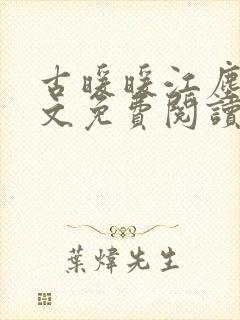 古暖暖江塵
文免費閱讀
葉煒先生